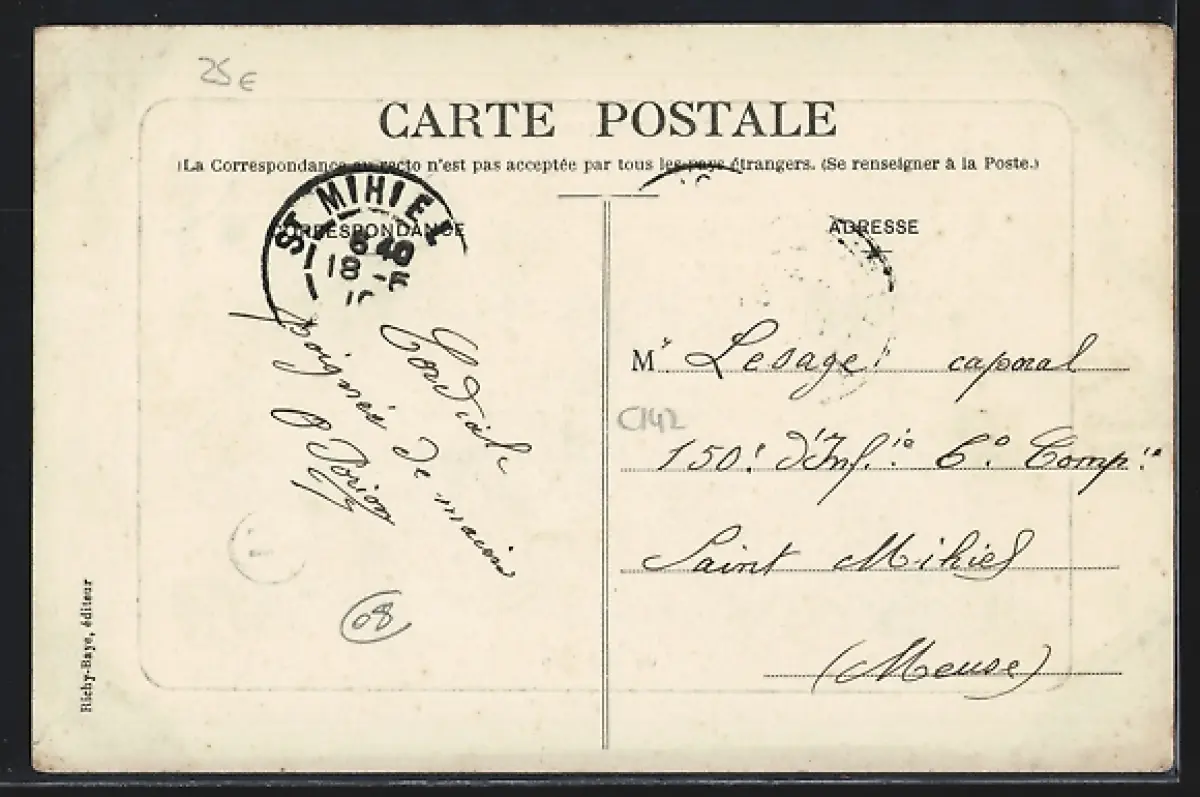 25€
CARTE POSTALE
(La Correspondance au recto n'est pas acceptée par tous les pays étrangers. (Se renseigner à la Poste.)
CORRESPONDANCE
ST MIHIEL
6 40
18 -6
Cordiale
poignées de main
ADRESSE
Mr. Lesage caporal
150e d'Inf.ie 6e Comp.ie
Saint Mihiel
(Meuse)
C142
08
Richy-Baye, éditeur